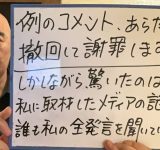 例のコメント、あらた
撤回して謝罪しま
しかしながら驚いたのは
私に取材したメディアの記
誰も私の全発言を聞いて